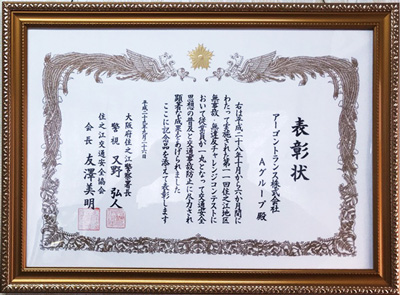 表彰状
アーゴントランス株式会社
Aグループ殿
右は平成二十八年十月から六か月間に
わたって実施された第一一回住之江地区
無事故・無違反チャレンジコンテストに
おいて従業員が一丸となって交通安全
思想の普及と交通事故防止に尽力され
顕著な成果をあげられました
ここに記念品を添えて表彰します
平成二十九年五月二十六日
大阪府住之江警察署長
警視 又野弘人
住之江交通安全協会
会長 友澤美明